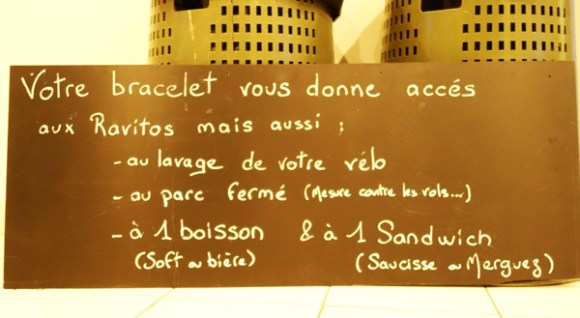 Votre bracelet vous donne accés
aux Ravitos mais aussi :
- au lavage de votre vélo
- au parc fermé (Mesure contre les vols...)
- à 1 boisson & à 1 Sandwich
(Soft ou bière) (Saucisse ou Merguez)